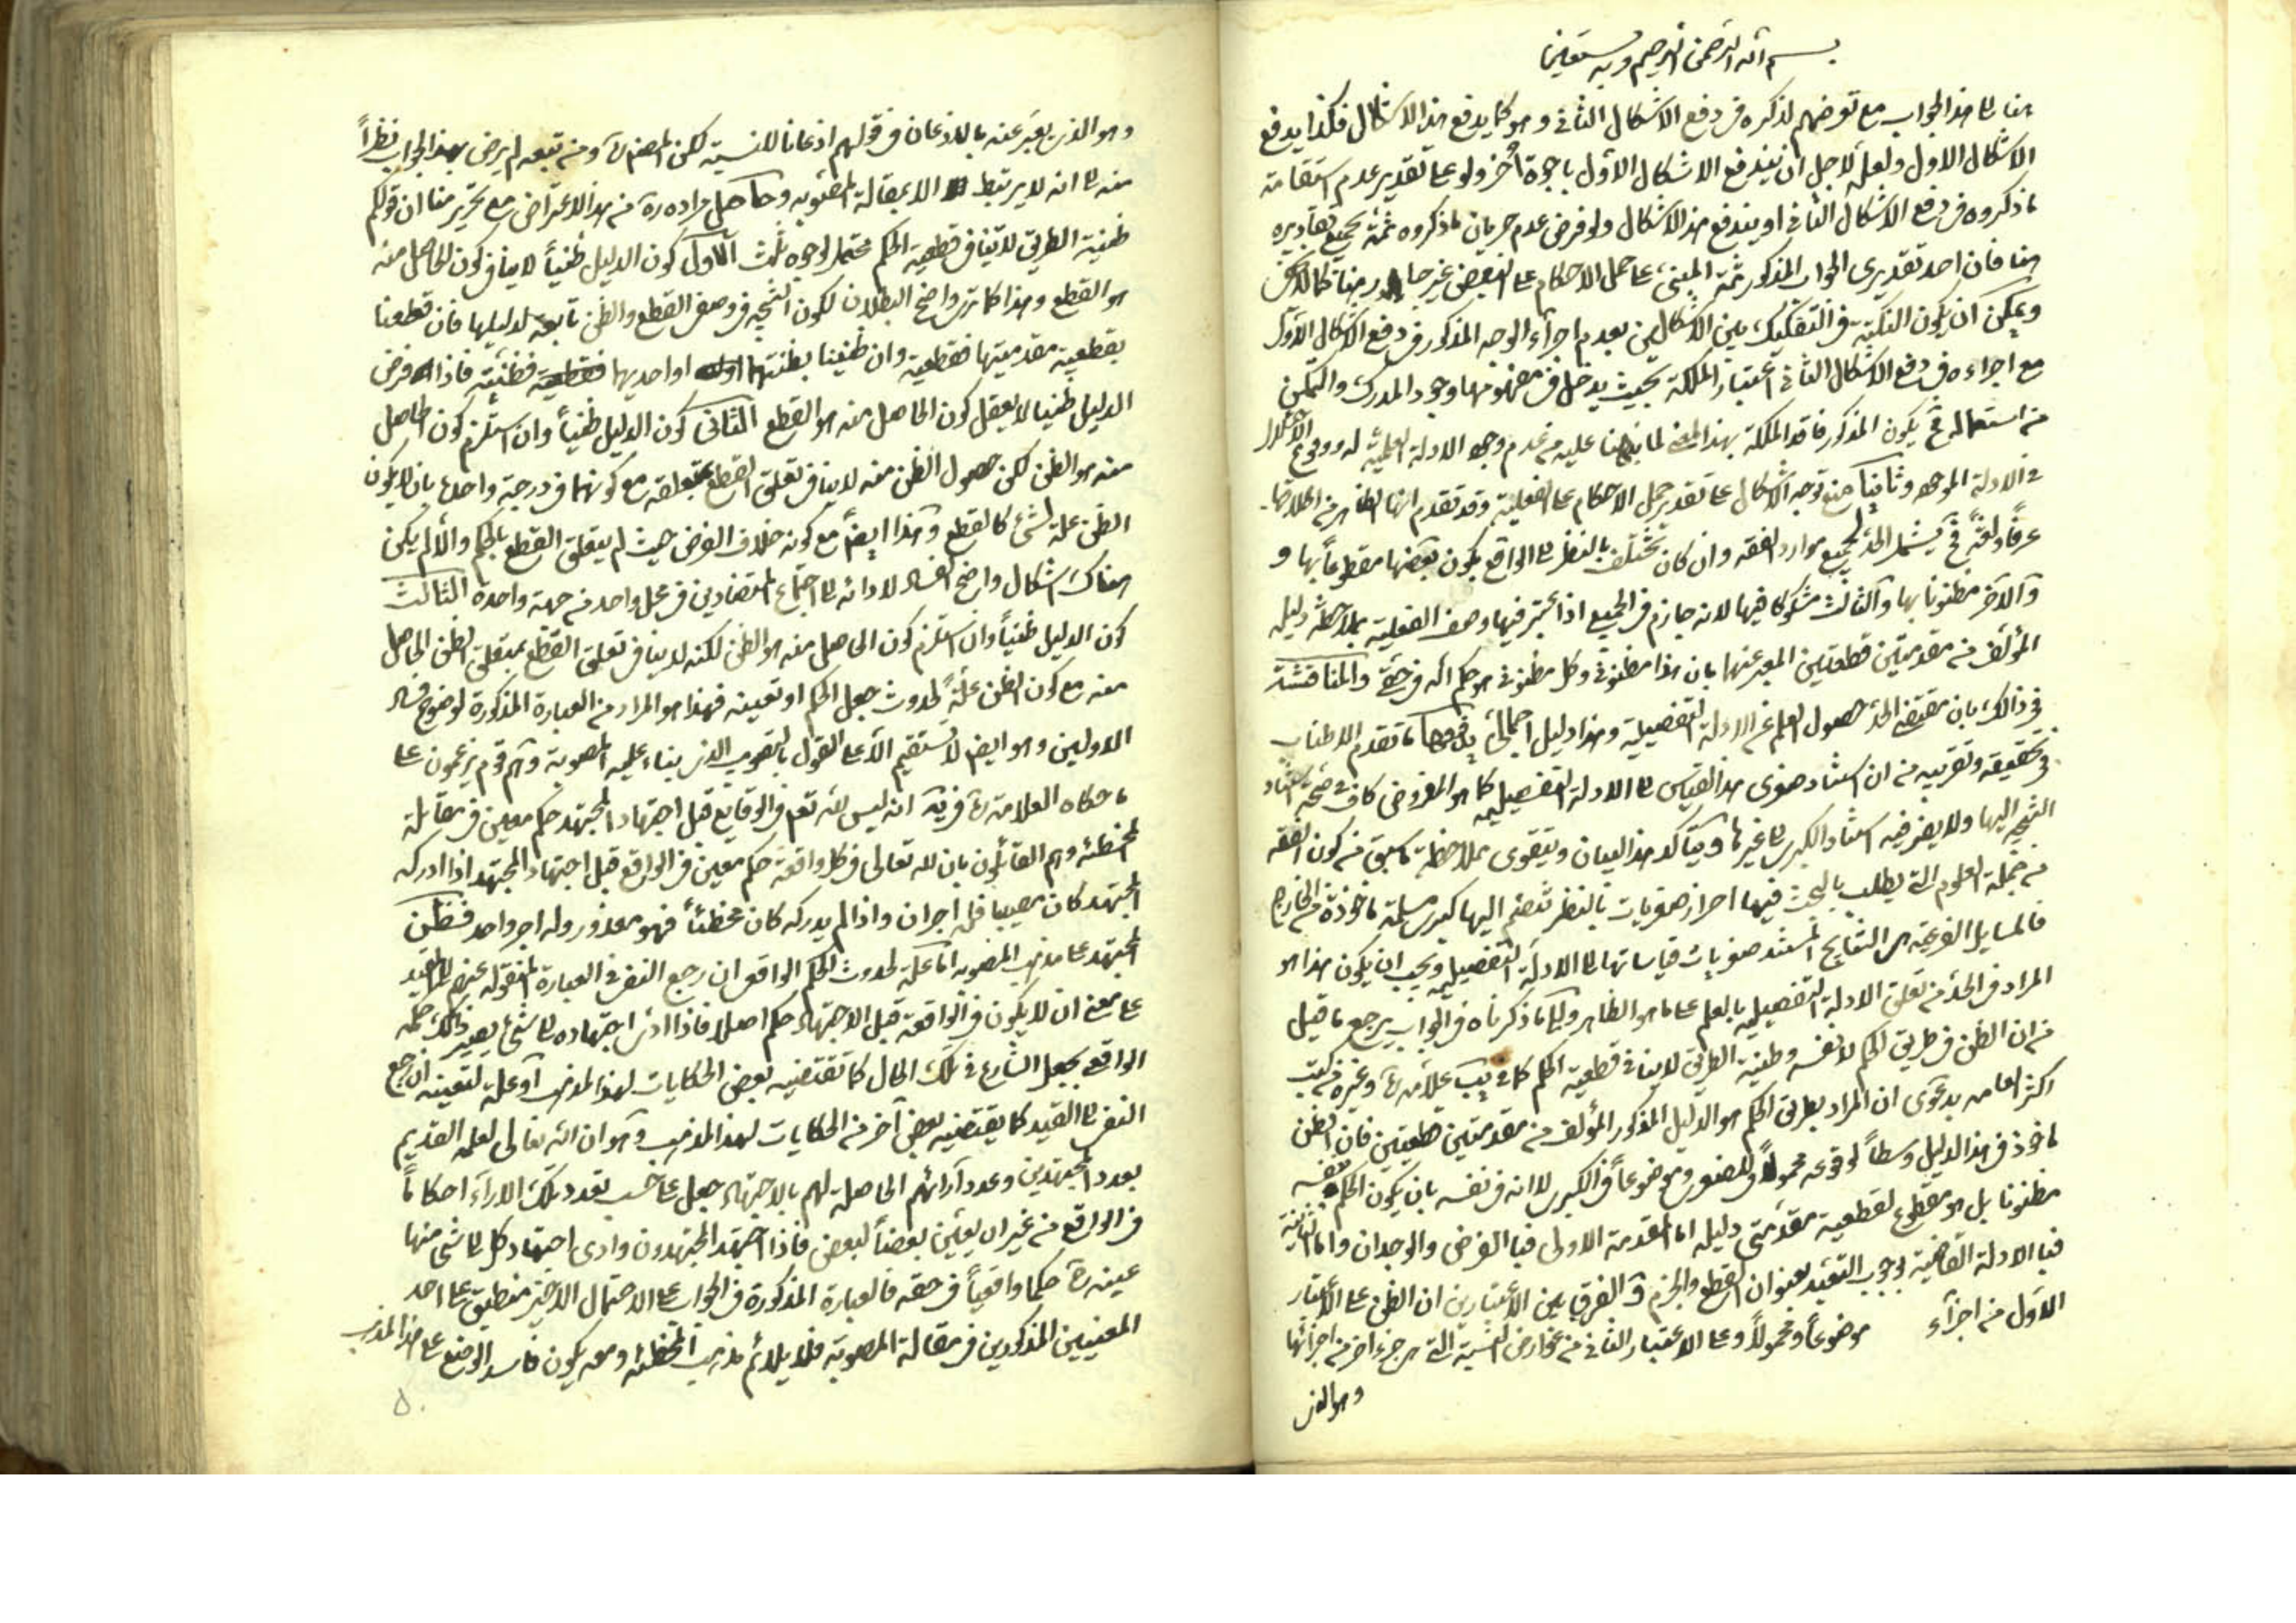 بسم الله الرحمن الرحيم وبه نستعين
هنا الى هذا الجواب مع تعرضهم لذكره في دفع الاشكال الثاني وهو كما يدفع هذا الاشكال فكذا يدفع
الاشكال الاول ولعله لاجل ان يندفع الاشكال الأول باجوبة أخر ولو على تقدير عدم استقامة
ما ذكروه في دفع الاشكال الثاني او يندفع هذا الاشكال ولو فرض عدم جريان ما ذكروه ثمة بجميع تقاديره
هنا فان احد تقديري الجواب المذكور ثمة المبني على حمل الاحكام على البعض غير جار هنا كما لا يخفى
ويمكن ان يكون النكتة في التفكيك بين الاشكالين بعدم اجراء الوجه المذكور في دفع الاشكال الأول
مع اجراءه في دفع الاشكال الثاني اعتبار الملكة بحيث يدخل في مفهومها وجود المدرك والتمكن
من استعماله فح يكون المذكور فاقد الملكة بهذا المعنى لما نبهنا عليه من عدم وجود الادلة العلمية له ووقوع الاختلال
في الادلة الموجودة وثانيا منع توجه الاشكال على تقدير حمل الاحكام على الفعلية وقد تقدم انها الظاهر من اطلاقها
عرفاً ولغةً فح يشمل الحد لجميع موارد الفقه وان كان تختلف بالنظر الى الواقع بكون بعضها مقطوعاً بها و
والآخر مظنونا بها والثالث مشكوكا فيها لانه جازم في الجميع اذا اعتبر فيها وصف الفعلية بملاحظة دليله
المؤلف من مقدمتين قطعيتين المعبر عنها بان هذا مظنوني وكل مظنوني هو حكم الله في حقي والمناقشة
في ذلك بان مقتضى الحد حصول العلم عن الادلة التفصيلية وهذا دليل اجمالي يدفعها ما تقدم الاطناب
في تحقيقه وتقريبه من ان استناد صغرى هذا القياس الى الادلة التفصيلية كما هو المفروض كاف في صحة استناد
النتيجة اليها ولا يضر فيه استناد الكبرى الى غيرها ويتأكد هذا البيان ويتقوى بملاحظة ما سبق من كون الفقه
من جملة العلوم التي يطلب بالبحث فيها احراز صغريات بالنظر تنضم اليها كبرى مسلمة ماخوذة من الخارج
فالمسايل الفرعية هي النتايج المستند صغريات قياساتها الى الادلة التفصيلية ويجب ان يكون هذا هو
المراد في الحد من تعلق الادلة التفصيلية بالعلم على ما هو الظاهر والى ما ذكرناه في الجواب يرجع ما قيل
من ان الظن في طريق الحكم لا نفسه وظنية الطريق لا ينافي قطعية الحكم كما في يب علامة ره وغيره من كتب
اكثر العامه بدعوى ان المراد بطريق الحكم هو الدليل المذكور المؤلف من مقدمتين قطعيتين فان الظن
ماخوذ في هذا الدليل وسطاً لوقوعه محمولاً في الصغرى وموضوعاً في الكبرى لا انه في نفسه بان يكون الحكم نفسه
مظنونا بل هو مقطوع لقطعية مقدمتي دليله اما المقدمة الاولى فبالفرض والوجدان واما الثانية
فبالادلة القاضية بوجوب التعبد بعنوان القطع والجزم والفرق بين الاعتبارين ان الظن على الاعتبار
الأول من اجزاء موضوعاً ومحمولاً وعلى الاعتبار الثاني من عوارض النسبة التي هي جزء اخر من اجزائها
وهو الذي
وهو الذي يعبر عنه بالاذعان في قولهم اذعانا للنسبة لكن المصنف ره ومن تبعه لم يرض بهذا الجواب نظراً
منه الى انه لا يرتبط الا بمقالة المصوبه وحاصل مراده ره من هذا الاعتراض مع تحرير منا ان قولكم
ظنية الطريق لا تنافي قطعية الحكم محتمل لوجوه ثلث الأول كون الدليل ظنياً لا ينافي كون الحاصل منه
هو القطع وهذا كما ترى واضح البطلان لكون النتيجة في وصفي القطع والظن تابعة لدليلها فان قطعنا
بقطعية مقدمتيها فقطعية وان ظنينا بظنيتهما او احديهما فظنية فاذا فرض
الدليل ظنيا لا يعقل كون الحاصل منه هو القطع الثاني كون الدليل ظنياً وان استلزم كون الحاصل
منه هو الظن لكن حصول الظن منه لا ينافي تعلق القطع بمتعلقه مع كونهما في درجة واحدة بان لا يكون
الظن علة لشئ كالقطع وهذا ايضاً مع كونه خلاف الفرض حيث لم يتعلق القطع بالحكم والا لم يكن
هناك اشكال واضح الفساد لادائه الى اجتماع المتضادين في محل واحد من جهة واحدة الثالث
كون الدليل ظنياً وان استلزم كون الحاصل منه هو الظن لكنه لا ينافي تعلق القطع بمتعلق الظن الحاصل
منه مع كون الظن علة لحدوث جعل الحكم او تعينه فهذا هو المراد من العبارة المذكورة لوضوح فساد
الاولين وهو ايضا لا يستقيم الا على القول بالتصويب الذي بناء عليه المصوبة وهم قوم يزعمون على
ما حكاه العلامة ره في يه انه ليس لله تعم في الوقايع قبل اجتهاد المجتهد حكم معين في مقابلة
المخطئة وهم القائلون بان لله تعالى في كل واقعة حكم معين في الواقع قبل اجتهاد المجتهد اذا ادركه
المجتهد كان مصيبا فله اجران واذا لم يدركه كان مخطئاً فهو معذور وله اجر واحد فظن
المجتهد على مذهب المصوبه اما علة لحدوث الحكم الواقعي ان رجع النفي في العبارة المنقولة عنهم الى المقيد
على معنى ان لا يكون في الواقعة قبل الاجتهاد حكم اصلا فاذا ادى اجتهاده الى شئ يصير ذلك حكمه
الواقعي بجعل الشارع في تلك الحال كما تقتضيه بعض الحكايات لهذا المذهب أو علة لتعينه ان رجع
النفي الى القيد كما يقتضيه بعض آخر من الحكايات لهذا المذهب وهو ان الله تعالى لعلمه القديم
بعدد المجتهدين وعدد آرائهم الحاصلة لهم بالاجتهاد جعل على حسب تعدد تلك الاراء احكاماً
في الواقع من غير ان يعين بعضاً لبعض فاذا اجتهد المجتهدون وادى اجتهاد كل الى شئ منها
عينه ره حكما واقعياً في حقه فالعبارة المذكورة في الجواب على الاحتمال الاخير منطبق على احد
المعنيين المذكورين في مقالة المصوبة فلا يلائم مذهب المخطئة ومعه يكون فاسد الوضع على هذا المذهب